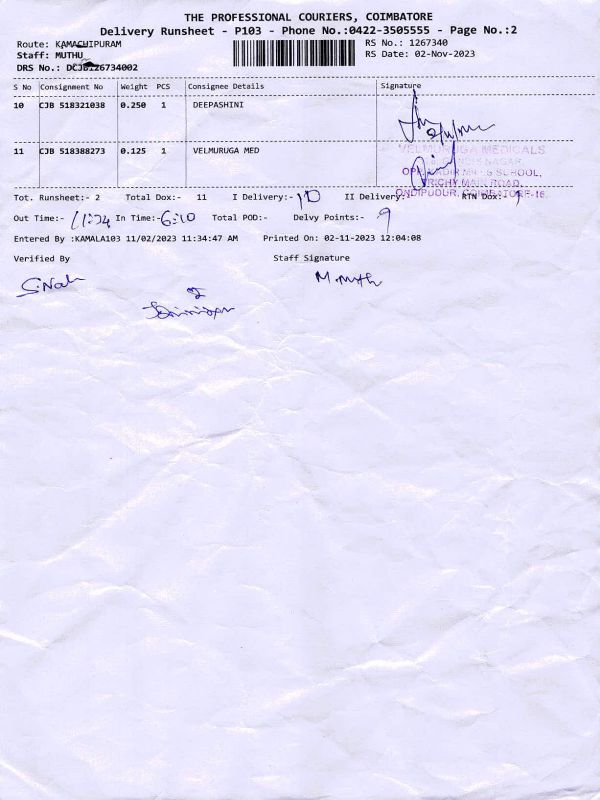 THE PROFESSIONAL COURIERS, COIMBATORE
Delivery Runsheet - P103 - Phone No.:0422-3505555 - Page No.:2
Route: KAMACHIPURAM RS No.: 1267340
Staff: MUTHU RS Date: 02-Nov-2023
DRS No.: DCJB126734002
S No Consignment No Weight PCS Consignee Details Signature
10 CJB 518321038 0.250 1 DEEPASHINI
11 CJB 518388273 0.125 1 VELMURUGA MED
VELMURUGA MEDICALS
NAGAR,
SCHOOL,
TRICHY MAIN ROAD,
ONDIPUDUR, COIMBATORE-16.
Tot. Runsheet:- 2 Total Dox:- 11 I Delivery:- 10 II Delivery: RTN Dox: 1
Out Time:- 11:34 In Time:- 6:10 Total POD:- Delvy Points:- 9
Entered By :KAMALA103 11/02/2023 11:34:47 AM Printed On: 02-11-2023 12:04:08
Verified By Staff Signature